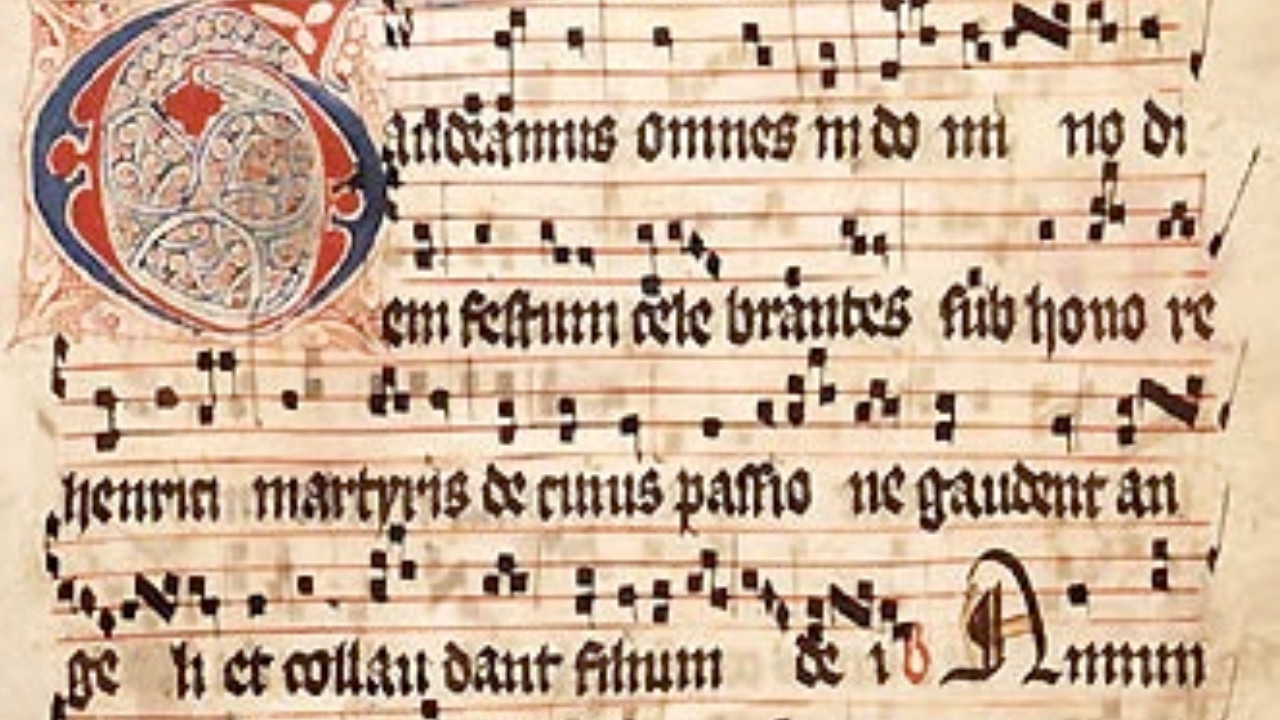 Gaudeamus omnes in do mi no di
em festum cele brantes sub hono re
henrici martyris de cuius passio ne gaudent an
ge li et collau dant filium de i Annun